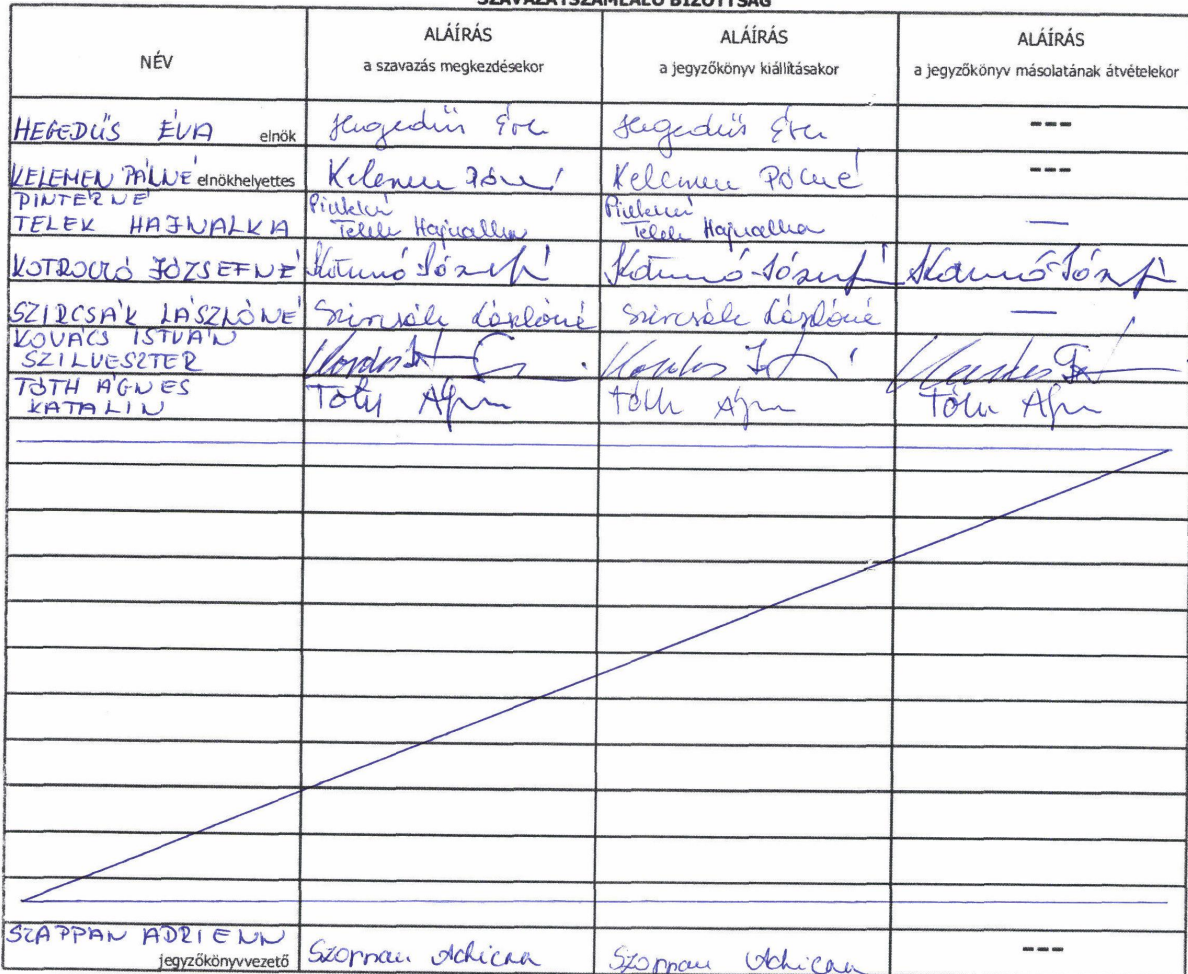 SZAVAZATSZÁMLÁLÓ BIZOTTSÁG
NÉV
ALÁÍRÁS
a szavazás megkezdésekor
ALÁÍRÁS
a jegyzőkönyv kiállításakor
ALÁÍRÁS
a jegyzőkönyv másolatának átvételekor
HEGEDÜS ÉVA elnök Hegedüs Éva Hegedüs Éva ---
KELEMEN PÁLNÉ elnökhelyettes Kelemen Pálné Kelemen Pálné ---
PINTÉRNÉ Pintérné Pintérné
TELEK HAJNALKA Telek Hajnalka Telek Hajnalka —
KOTROCZÓ JÓZSEFNÉ
SZIRCSÁK LÁSZLÓNÉ Szircsák Lászlóné Szircsák Lászlóné —
KOVÁCS ISTVÁN
SZILVESZTER
TÓTH ÁGNES
KATALIN Tóth Ágn Tóth Ágn Tóth Ágn
SZAPPAN ADRIENN
jegyzőkönyvvezető Szappan Adrienn Szappan Adrienn ---